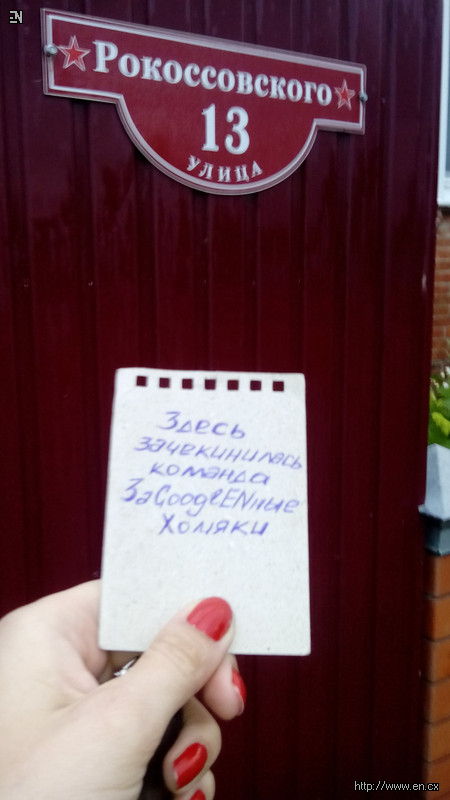 EN
Рокоссовского
13
УЛИЦА
Здесь
зачекинилась
команда
ЗаGoogлENные
Хомяки
http://www.en.cx